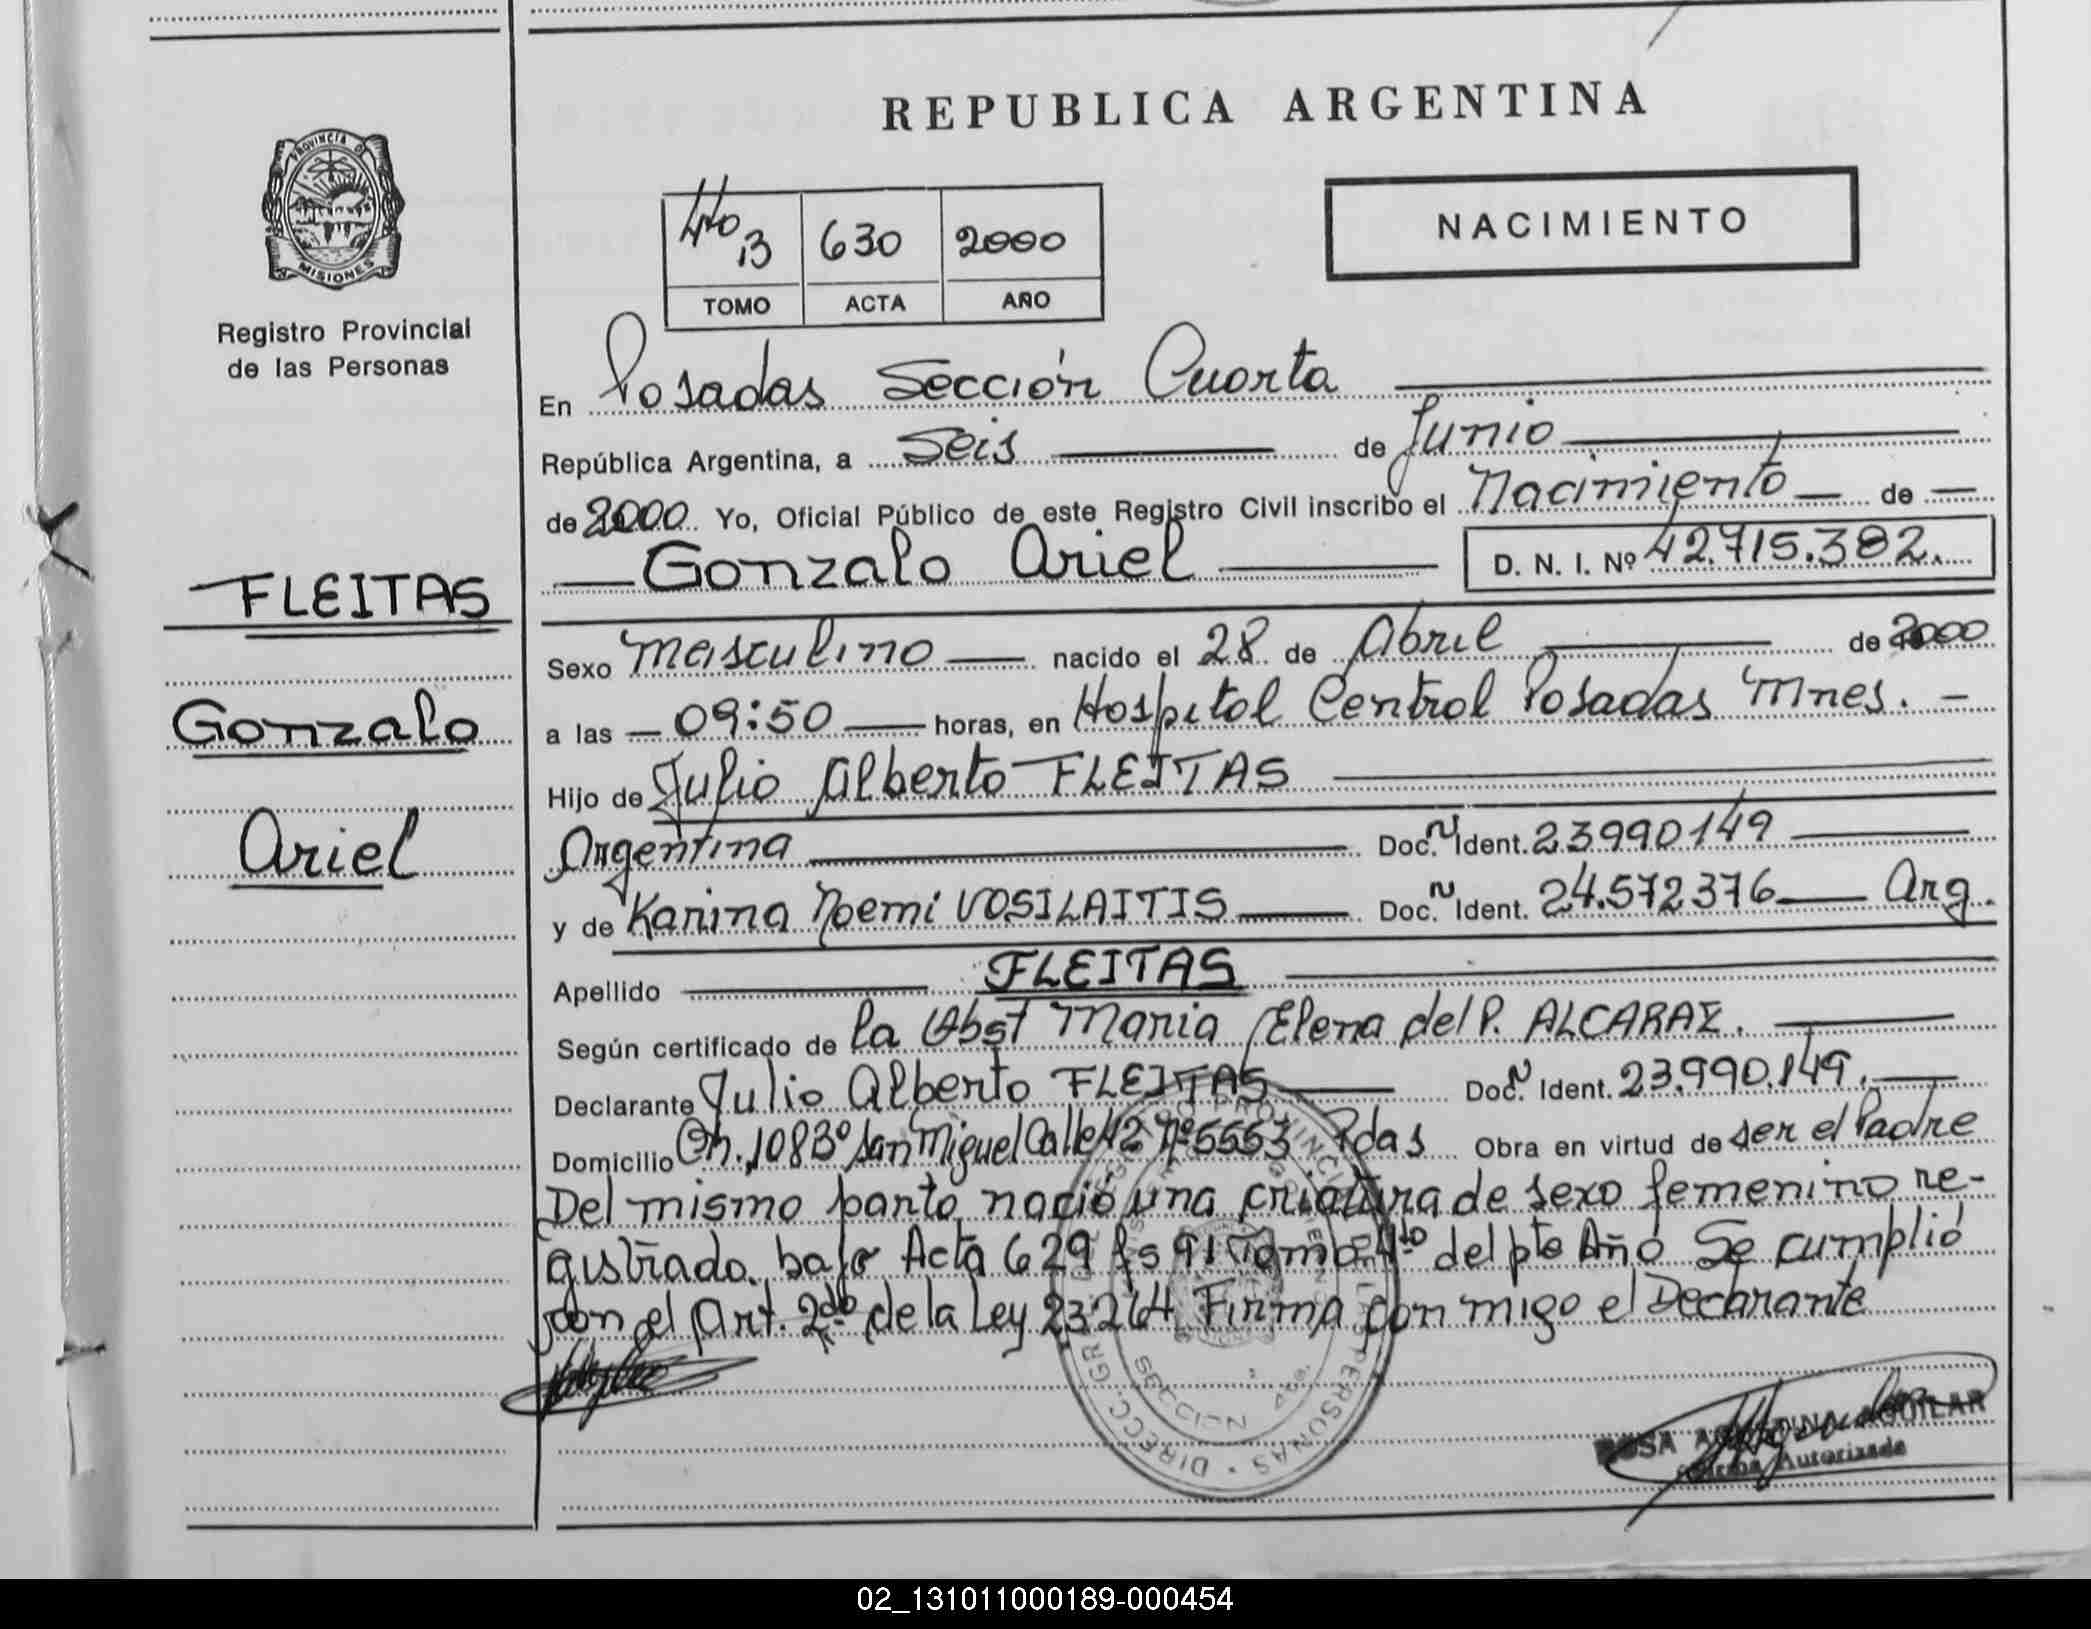 REPUBLICA ARGENTINA
PROVINCIA D
MISIONES
Registro Provincial
de las Personas
4to B 630 2000
TOMO ACTA AÑO
NACIMIENTO
En Posadas Sección Cuarta
República Argentina, a Seis de Junio
de 2000 Yo, Oficial Público de este Registro Civil inscribo el Nacimiento de
Gonzalo Ariel D. N. I. Nº 42.715.382.
FLEITAS
Gonzalo
Ariel
Sexo Masculino nacido el 28 de Abril de 2000
a las 09:50 horas, en Hospital Central Posadas Mnes.
Hijo de Julio Alberto FLEITAS
Argentina Doc. N Ident. 23990149
y de Karina Noemi VOSILAITIS Doc. N Ident. 24.572376 Arg.
Apellido FLEITAS
Según certificado de la Obst Maria Elena del P. ALCARAZ.
Declarante Julio Alberto FLEITAS Doc. N Ident. 23.990.149.
Domicilio Ch. 108 Bº San Miguel Calle 42 Nº 5553 Pdas Obra en virtud de ser el Padre
Del mismo parto nació una criatura de sexo femenino re-
gistrado bajo Acta 629 fs 91 Tomo 4to del pte Año Se cumplió
con el Art. 2do de la Ley 23264 Firma con migo el Declarante
ROSA AGUILAR
Autorizada
02_131011000189-000454